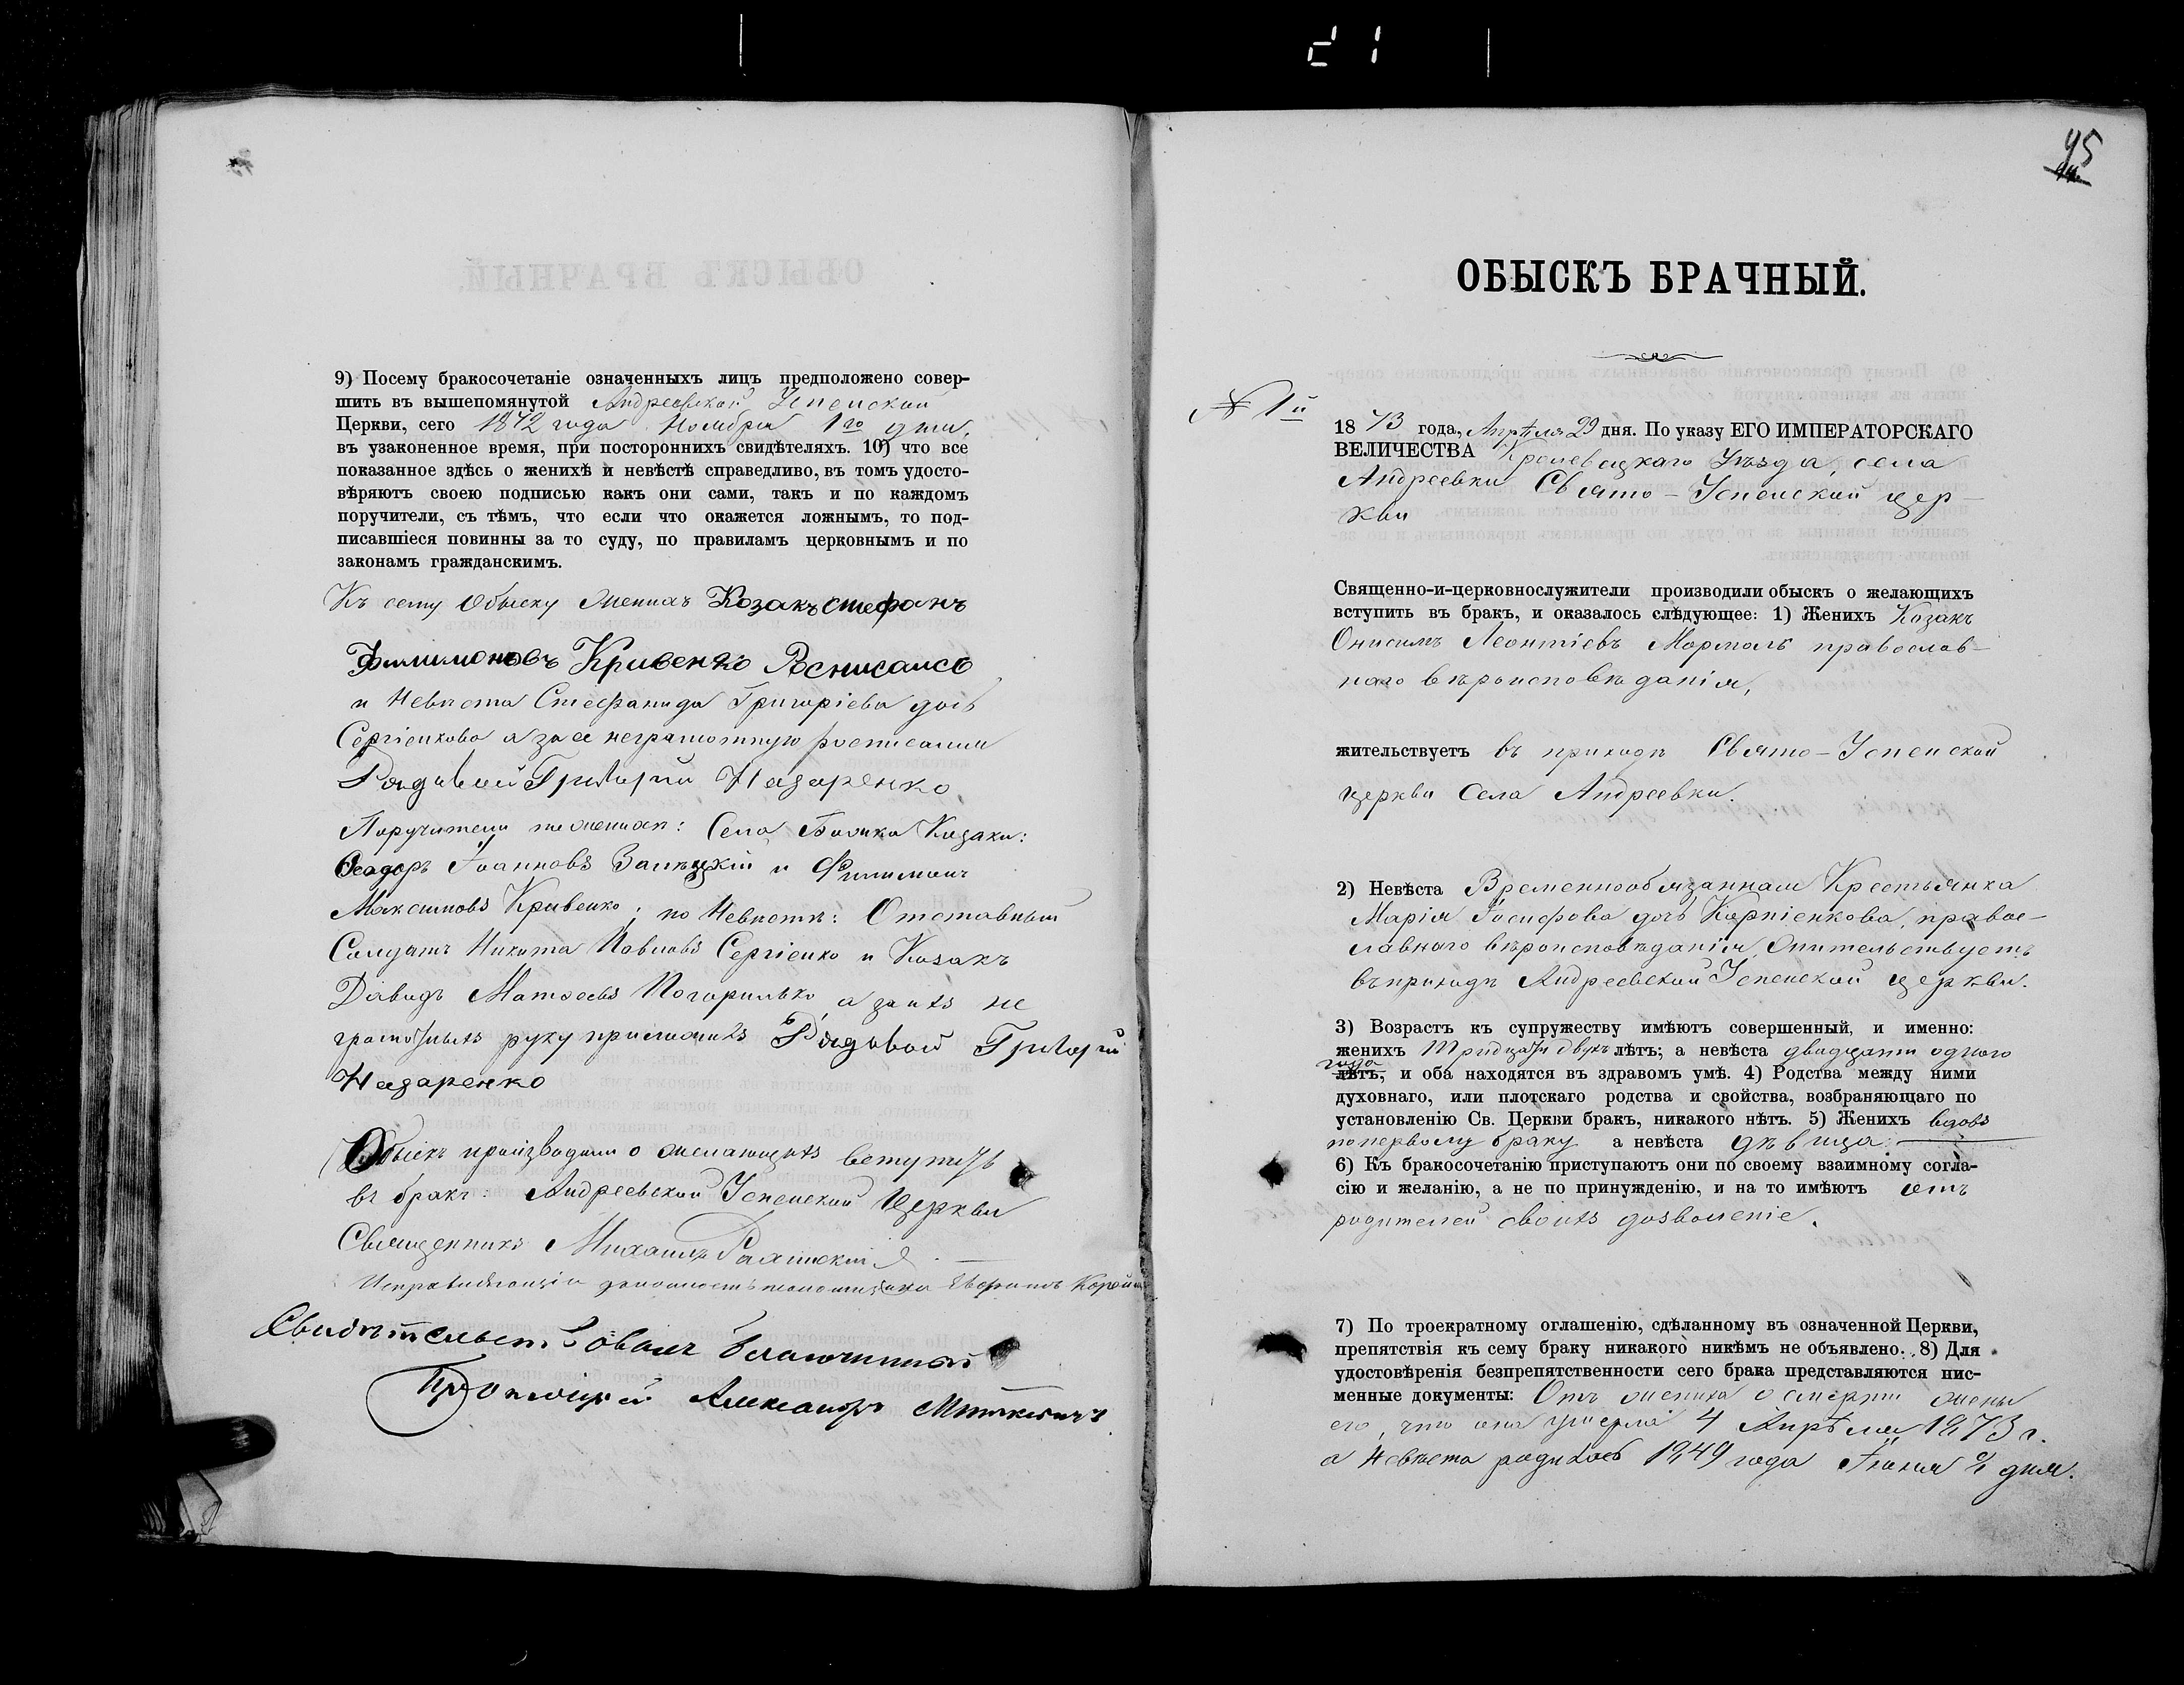 9) Посему бракосочетаніе означенныхъ лицъ предположено совер-
шить въ вышепомянутой Андреевской Успенской
Церкви, сего 1872 года Ноября 1го дня,
въ узаконенное время, при постороннихъ свидѣтеляхъ. 10) что все
показанное здѣсь о женихѣ и невѣстѣ справедливо, въ томъ удосто-
вѣряютъ своею подписью какъ они сами, такъ и по каждомъ
поручители, съ тѣмъ, что если что окажется ложнымъ, то под-
писавшіеся повинны за то суду, по правиламъ церковнымъ и по
законамъ гражданскимъ.
Къ сему Обыску Женихъ Козакъ стефанъ
Филимоновъ Кривенко Роснисался
и Невѣста Стефанида Григоріева дочь
Сергіенкова а за ее неграмотную росписался
Рядовой Григорій Назаренко
Поручители по женихѣ: Села Козаки:
Феодоръ Іоанновъ и Филимонъ
Максимовъ Кривенко; по Невѣстѣ: Отставный
Солдатъ Никита Павловъ Сергіенко и Козакъ
Давидъ Матѳеевъ Погорилько, а за ихъ не
грамотныхъ руку приложилъ Рядовой Григорій
Назаренко
Обыскъ производили о желающихъ вступить
въ бракъ: Андреевской Успенской Церкви
Священникъ Михаилъ
Исправляющій должность Евфимъ
Свидѣтельствовалъ Благочинный
Протоіерей Александръ
95
ОБЫСКЪ БРАЧНЫЙ.
№ 1й
1873 года, Апрѣля 29 дня. По указу ЕГО ИМПЕРАТОРСКАГО
ВЕЛИЧЕСТВА Кролевецкаго Уѣзда, села
Андреевки Свято-Успенской цер-
кви
Священно-и-церковнослужители производили обыскъ о желающихъ
вступить въ бракъ, и оказалось слѣдующее: 1) Женихъ Козакъ
Онисимъ Леонтіевъ Мормоль православ-
наго вѣроисповѣданія,
жительствуетъ въ приходѣ Свято-Успенской
церкви Села Андреевки.
2) Невѣста Временнообязанная Крестьянка
Марія Іосифова дочь Карпіенкова, правос-
лавнаго вѣроисповѣданія, Жительствуетъ
въ приходѣ Андреевской Успенской церкви.
3) Возрастъ къ супружеству имѣютъ совершенный, и именно:
женихъ тридцати двухъ лѣтъ; а невѣста двадцати одного
года
лѣтъ, и оба находятся въ здравомъ умѣ. 4) Родства между ними
духовнаго, или плотскаго родства и свойства, возбраняющаго по
установленію Св. Церкви бракъ, никакого нѣтъ. 5) Женихъ вдовъ
по первому браку а невѣста дѣвица.
6) Къ бракосочетанію приступаютъ они по своему взаимному согла-
сію и желанію, а не по принужденію, и на то имѣютъ отъ
родителей своихъ дозволеніе.
7) По троекратному оглашенію, сдѣланному въ означенной Церкви,
препятствія къ сему браку никакого никѣмъ не объявлено. 8) Для
удостовѣренія безпрепятственности сего брака представляются пис-
менные документы: Отъ жениха о смерти жены
его, что она умерла 4 Апрѣля 1873 г.
а Невѣста родилась 1849 года Іюня дня.